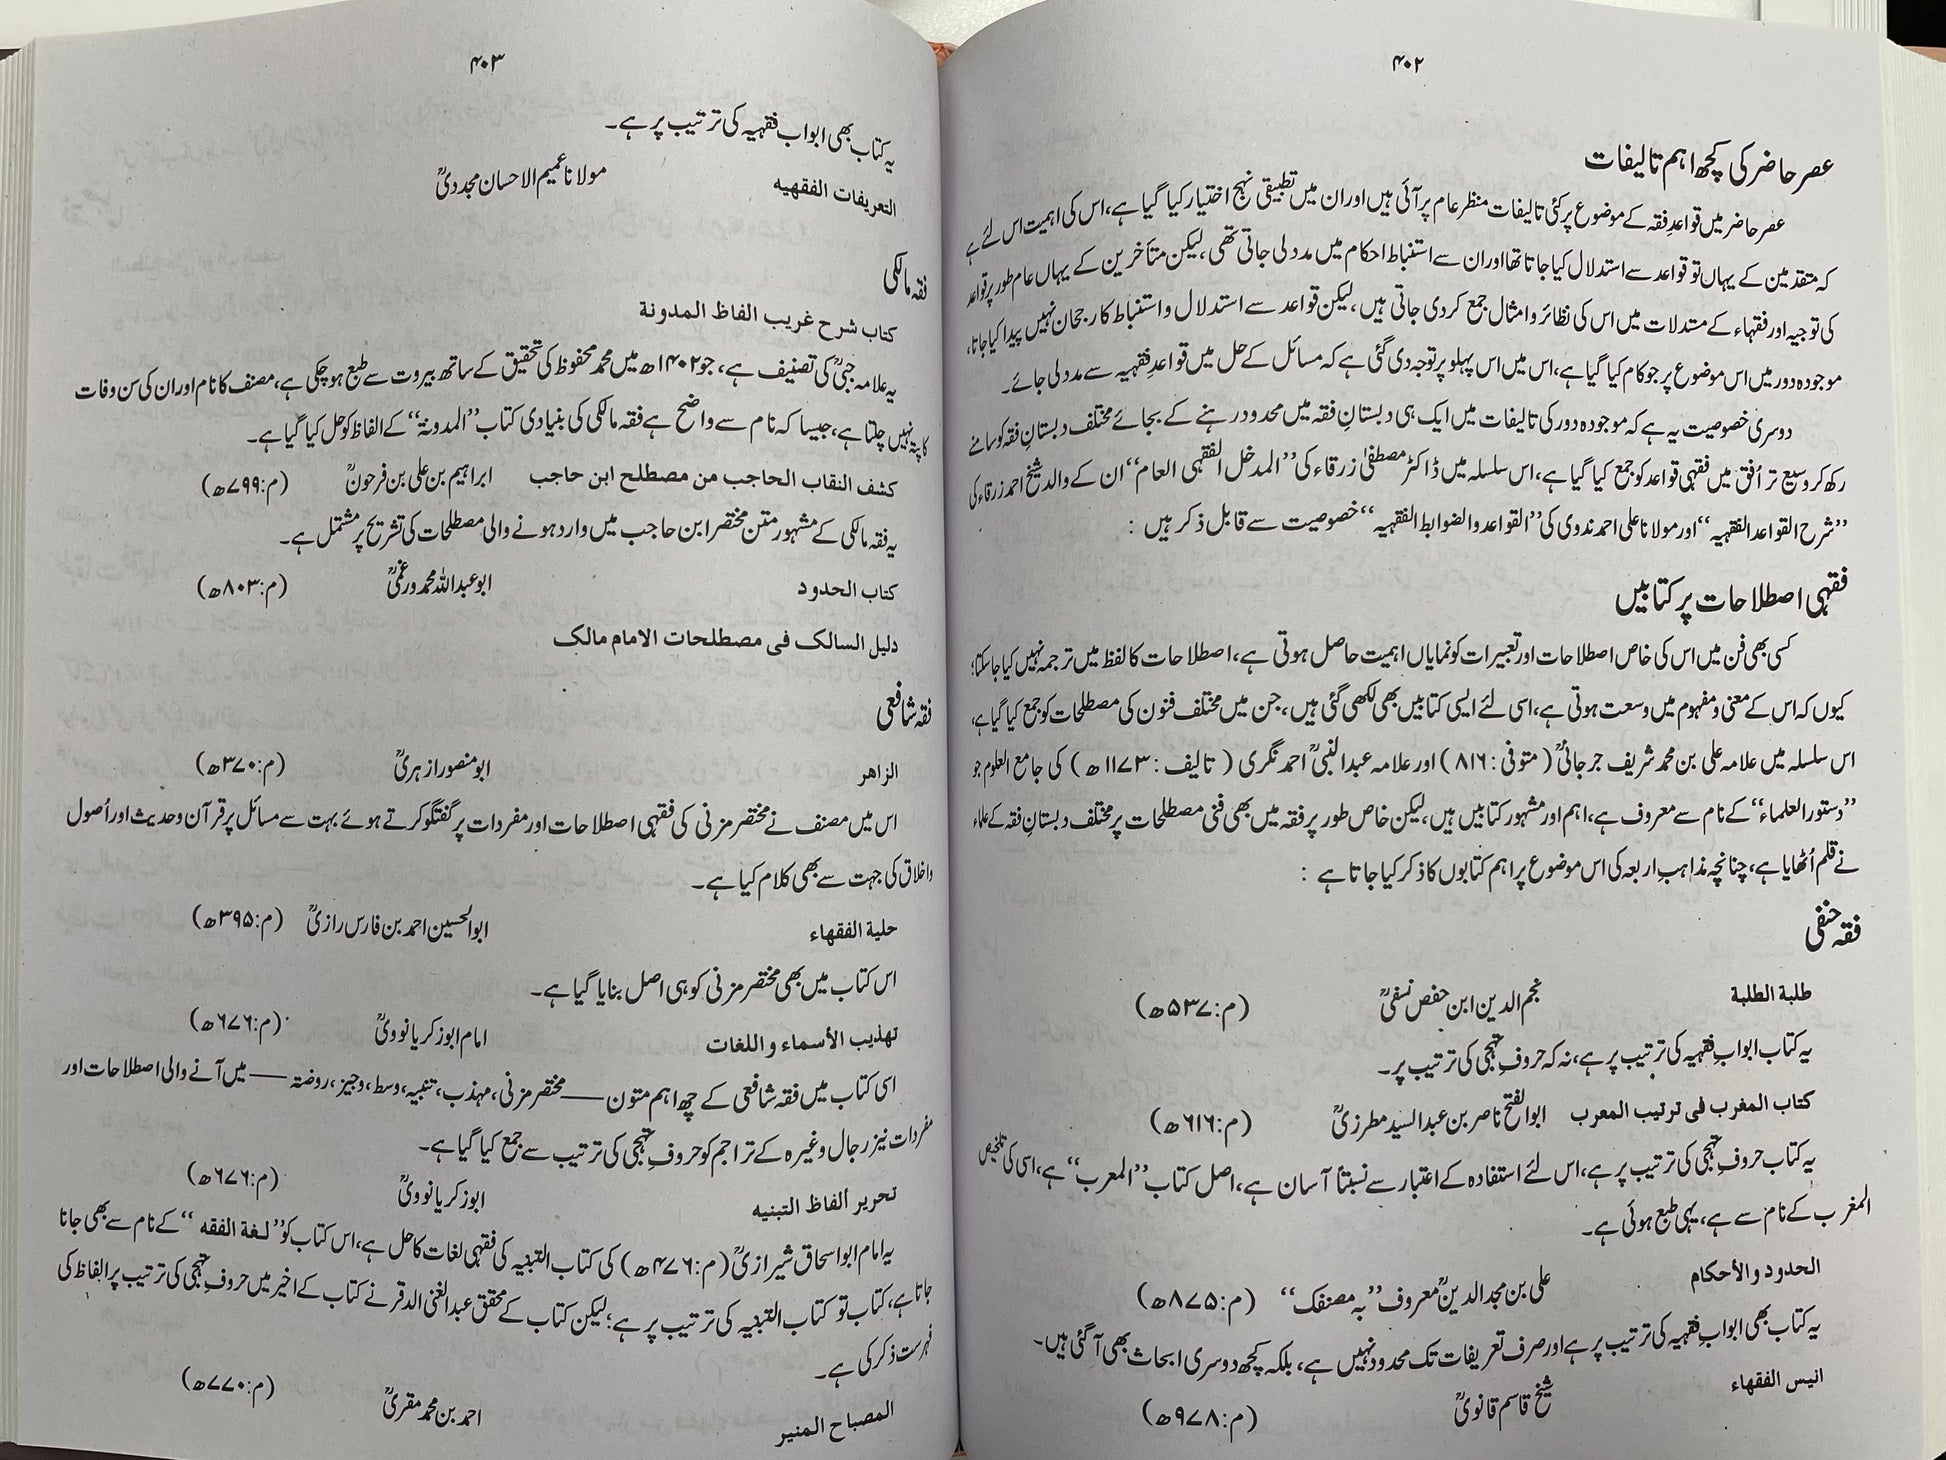 ۴۰۲
عصر حاضر کی کچھ اہم تالیفات
عصر حاضر میں قواعد فقہ کے موضوع پر کئی تالیفات منظر عام پر آئی ہیں اور ان میں تطبیقی نہج اختیار کیا گیا ہے، اس کی اہمیت اس لئے ہے
کہ متقدمین کے یہاں تو قواعد سے استدلال کیا جاتا تھا اور ان سے استنباط احکام میں مدد لی جاتی تھی، لیکن متأخرین کے یہاں عام طور پر قواعد
کی توجیہ اور فقہاء کے مستدلات میں اس کی نظائر و امثال جمع کر دی جاتی ہیں، لیکن قواعد سے استدلال و استنباط کا رجحان نہیں پیدا کیا جاتا،
موجودہ دور میں اس موضوع پر جو کام کیا گیا ہے، اس میں اس پہلو پر توجہ دی گئی ہے کہ مسائل کے حل میں قواعدِ فقہیہ سے مدد لی جائے۔
دوسری خصوصیت یہ ہے کہ موجودہ دور کی تالیفات میں ایک ہی دبستانِ فقہ میں محدود رہنے کے بجائے مختلف دبستانِ فقہ کو سامنے
رکھ کر وسیع تر اُفق میں فقہی قواعد کو جمع کیا گیا ہے، اس سلسلہ میں ڈاکٹر مصطفیٰ زرقاء کی ”المدخل الفقہی العام“ ان کے والد شیخ احمد زرقاء کی
”شرح القواعد الفقہیہ“ اور مولانا علی احمد ندوی کی ”القواعد والضوابط الفقہیہ“ خصوصیت سے قابل ذکر ہیں :
فقہی اصطلاحات پر کتابیں
کسی بھی فن میں اس کی خاص اصطلاحات اور تعبیرات کو نمایاں اہمیت حاصل ہوتی ہے، اصطلاحات کا لفظ میں ترجمہ نہیں کیا جا سکتا؛
کیوں کہ اس کے معنی و مفہوم میں وسعت ہوتی ہے، اسی لئے ایسی کتابیں بھی لکھی گئی ہیں، جن میں مختلف فنون کی مصطلحات کو جمع کیا گیا ہے،
اس سلسلہ میں علامہ علی بن محمد شریف جرجانیؒ (متوفی: ۸۱۶) اور علامہ عبد النبیؒ احمد نگری (تالیف: ۱۱۷۳ھ) کی جامع العلوم جو
”دستور العلماء“ کے نام سے معروف ہے، اہم اور مشہور کتابیں ہیں، لیکن خاص طور پر فقہ میں بھی فنی مصطلحات پر مختلف دبستانِ فقہ کے علماء
نے قلم اُٹھایا ہے، چنانچہ مذاہبِ اربعہ کی اس موضوع پر اہم کتابوں کا ذکر کیا جاتا ہے :
فقہ حنفی
طلبة الطلبة نجم الدین ابن حفص نسفیؒ (م:۵۳۷ھ)
یہ کتاب ابوابِ فقہیہ کی ترتیب پر ہے، نہ کہ حروفِ تہجی کی ترتیب پر۔
کتاب المغرب فی ترتیب المعرب ابوالفتح ناصر بن عبد السید مطرزیؒ (م:۶۱۶ھ)
یہ کتاب حروفِ تہجی کی ترتیب پر ہے، اس لئے استفادہ کے اعتبار سے نسبتاً آسان ہے، اصل کتاب ”المعرب“ ہے، اسی کی تلخیص
المغرب کے نام سے ہے، یہی طبع ہوئی ہے۔
الحدود والأحکام علی بن مجد الدینؒ معروف ”بہ مصنفک“ (م:۸۷۵ھ)
یہ کتاب بھی ابوابِ فقہیہ کی ترتیب پر ہے اور صرف تعریفات تک محدود نہیں ہے، بلکہ کچھ دوسری ابحاث بھی آ گئی ہیں۔
انیس الفقهاء شیخ قاسم قانویؒ (م:۹۷۸ھ)
۴۰۳
یہ کتاب بھی ابواب فقہیہ کی ترتیب پر ہے۔
التعریفات الفقهیه مولانا عمیم الاحسان مجددیؒ
فقہ مالکی
کتاب شرح غریب الفاظ المدونة
یہ علامہ جبیؒ کی تصنیف ہے، جو ۱۴۰۲ھ میں محمد محفوظ کی تحقیق کے ساتھ بیروت سے طبع ہو چکی ہے، مصنف کا نام اور ان کی سن وفات
کا پتہ نہیں چلتا ہے، جیسا کہ نام سے واضح ہے فقہ مالکی کی بنیادی کتاب ”المدونۃ“ کے الفاظ کو حل کیا گیا ہے۔
کشف النقاب الحاجب من مصطلح ابن حاجب ابراہیم بن علی بن فرحونؒ (م:۷۹۹ھ)
یہ فقہ مالکی کے مشہور متن مختصر ابن حاجب میں وارد ہونے والی مصطلحات کی تشریح پر مشتمل ہے۔
کتاب الحدود ابوعبداللہ محمد ورغمیؒ (م:۸۰۳ھ)
دلیل السالک فی مصطلحات الامام مالک
فقہ شافعی
الزاهر ابومنصور ازہریؒ (م:۳۷۰ھ)
اس میں مصنف نے مختصر مزنی کی فقہی اصطلاحات اور مفردات پر گفتگو کرتے ہوئے بہت سے مسائل پر قرآن و حدیث اور اُصول
و اخلاق کی جہت سے بھی کلام کیا ہے۔
حلیة الفقهاء ابوالحسین احمد بن فارس رازیؒ (م:۳۹۵ھ)
اس کتاب میں بھی مختصر مزنی کو ہی اصل بنایا گیا ہے۔
تهذیب الأسماء واللغات امام ابوزکریا نوویؒ (م:۶۷۶ھ)
اسی کتاب میں فقہ شافعی کے چھ اہم متون —— مختصر مزنی، مہذب، تنبیہ، وسط، وجیز، روضۃ —— میں آنے والی اصطلاحات اور
مفردات نیز رجال وغیرہ کے تراجم کو حروفِ تہجی کی ترتیب سے جمع کیا گیا ہے۔
تحریر ألفاظ التبنیه ابوزکریا نوویؒ (م:۶۷۶ھ)
یہ امام ابواسحاق شیرازیؒ (م:۴۷۶ھ) کی کتاب التنبیہ کی فقہی لغات کا حل ہے، اس کتاب کو ”لغة الفقه“ کے نام سے بھی جانا
جاتا ہے، کتاب تو کتاب التنبیہ کی ترتیب پر ہے؛ لیکن کتاب کے محقق عبد الغنی الدقر نے کتاب کے اخیر میں حروفِ تہجی کی ترتیب پر الفاظ کی
فہرست ذکر کی ہے۔
المصباح المنیر احمد بن محمد مقریؒ (م:۷۷۰ھ)